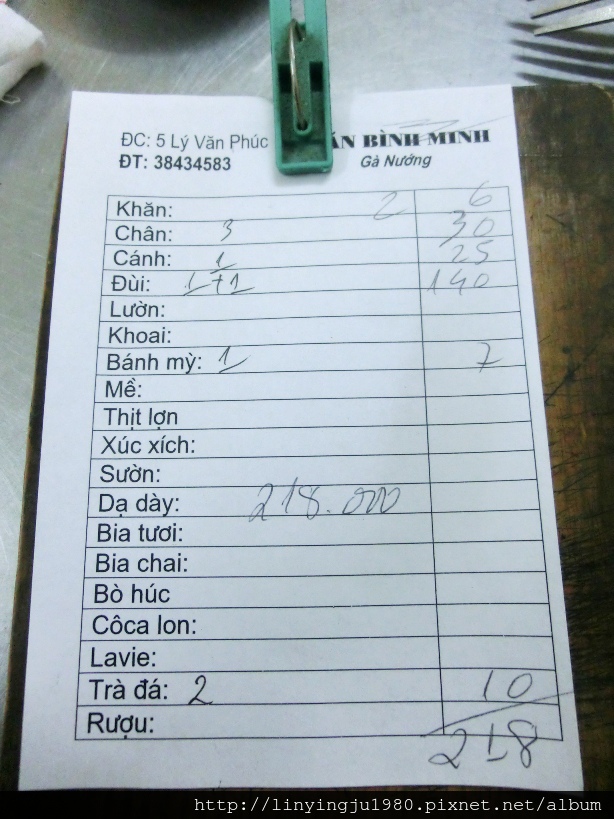 ĐC: 5 Lý Văn Phúc ÁN BÌNH MINH
ĐT: 38434583 Gà Nướng
Khăn: 2 6
Chân: 3 30
Cánh: 1 25
Đùi: 1+1 140
Lườn:
Khoai:
Bánh mỳ: 1 7
Mề:
Thịt lợn
Xúc xích:
Sườn:
Dạ dày: 218.000
Bia tươi:
Bia chai:
Bò húc
Côca lon:
Lavie:
Trà đá: 2 10
Rượu:
218
http://linyingju1980.pixnet.net/album